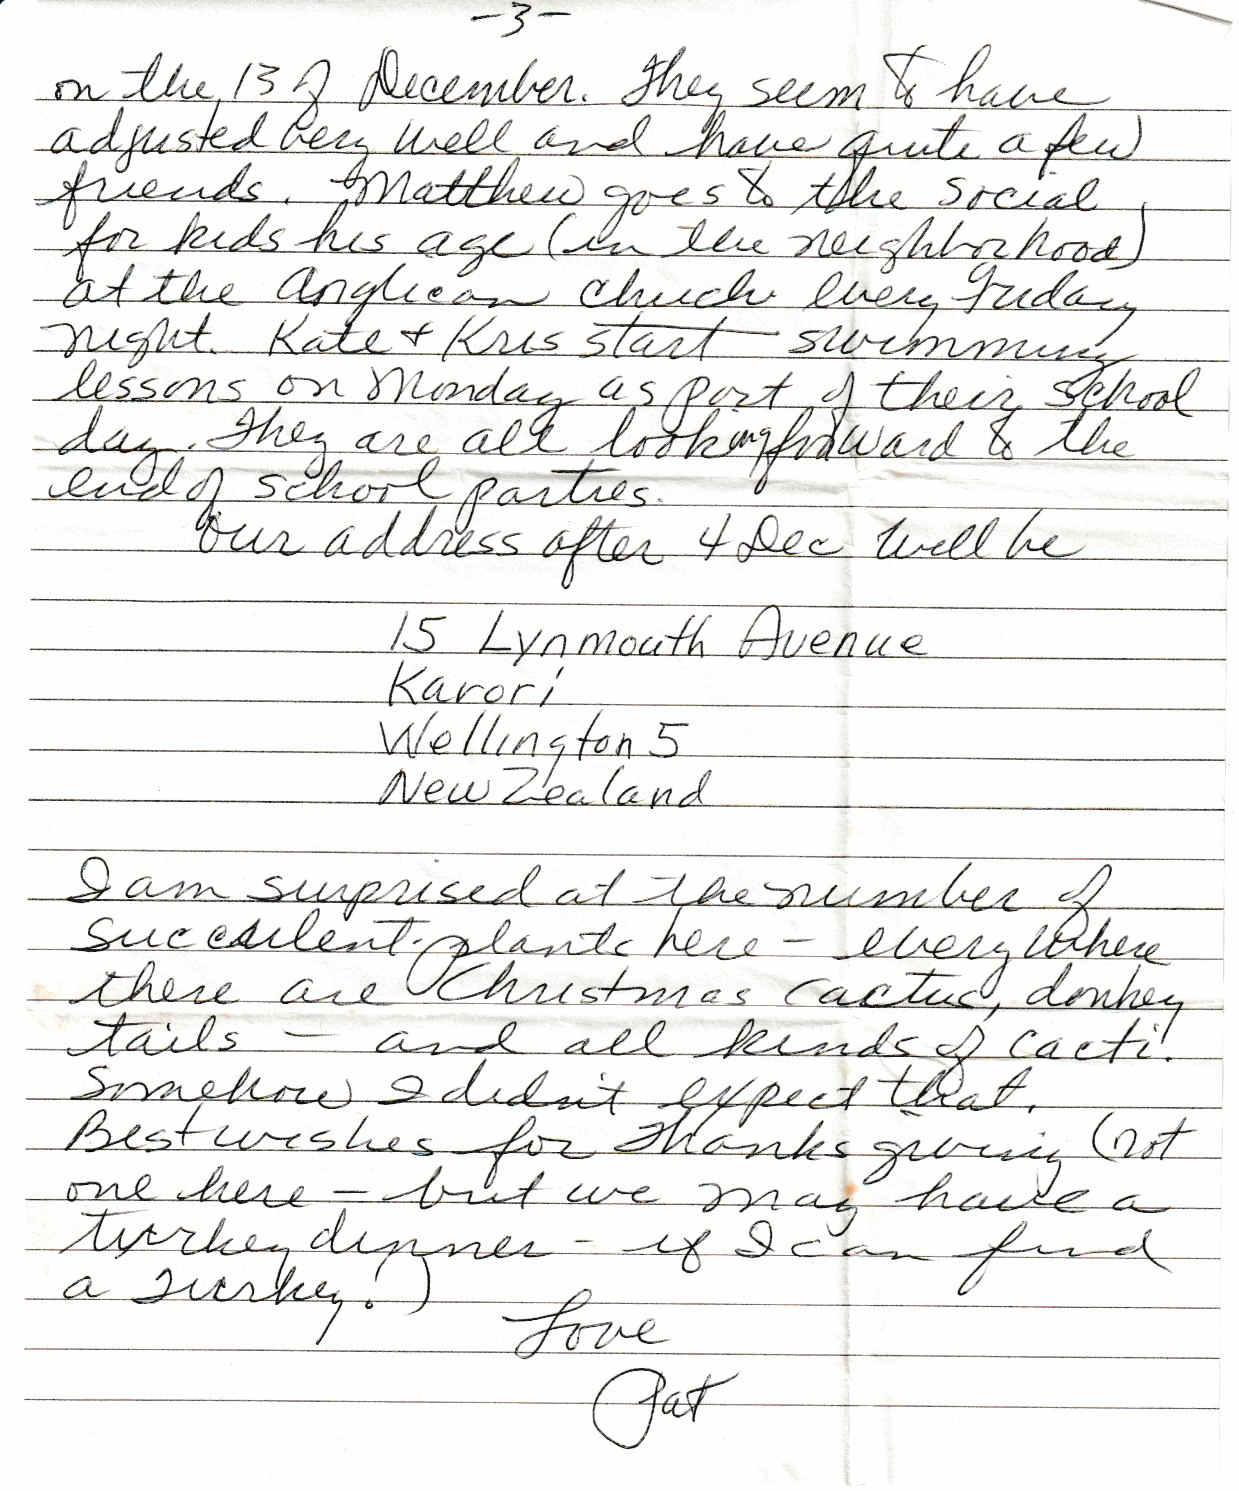 -3-
on the 13 of December. They seem to have
adjusted very well and have quite a few
friends. Matthew goes to the social
for kids his age (in the neighborhood)
at the Anglican church every Friday
night. Kate + Kris start swimming
lessons on Monday as part of their school
day. They are all looking forward to the
end of school parties.
Our address after 4 Dec will be
15 Lynmouth Avenue
Karori
Wellington 5
New Zealand
I am surprised at the number of
succulent plants here - everywhere
there are Christmas cactus, donkey
tails - and all kinds of cacti.
Somehow I didn't expect that.
Best wishes for Thanksgiving (not
one here - but we may have a
turkey dinner - if I can find
a turkey!)
Love
Pat